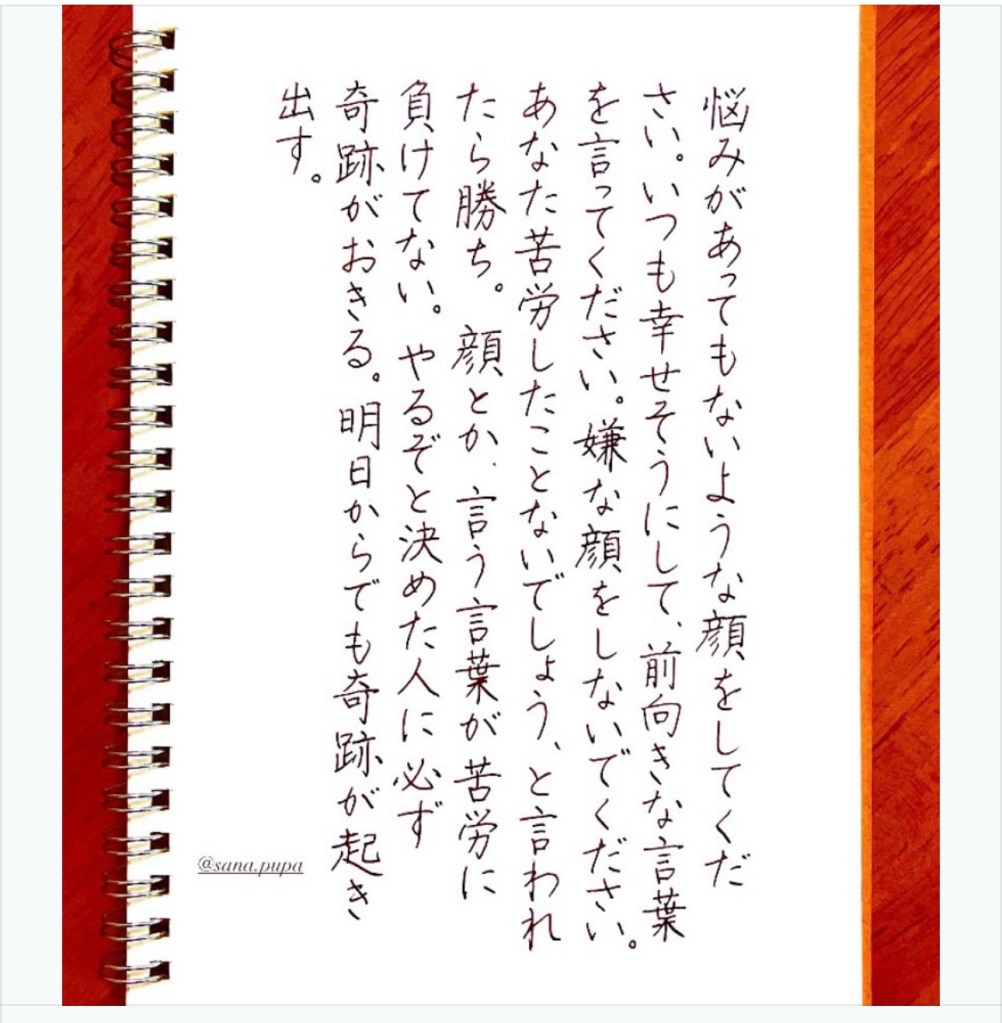 悩みがあってもないような顔をしてくだ
さい。いつも幸せそうにして、前向きな言葉
を言ってください。嫌な顔をしないでください。
あなた苦労したことないでしょう、と言われ
たら勝ち。顔とか、言う言葉が苦労に
負けてない。やるぞと決めた人に必ず
奇跡がおきる。明日からでも奇跡が起き
出す。
@sana.pupa